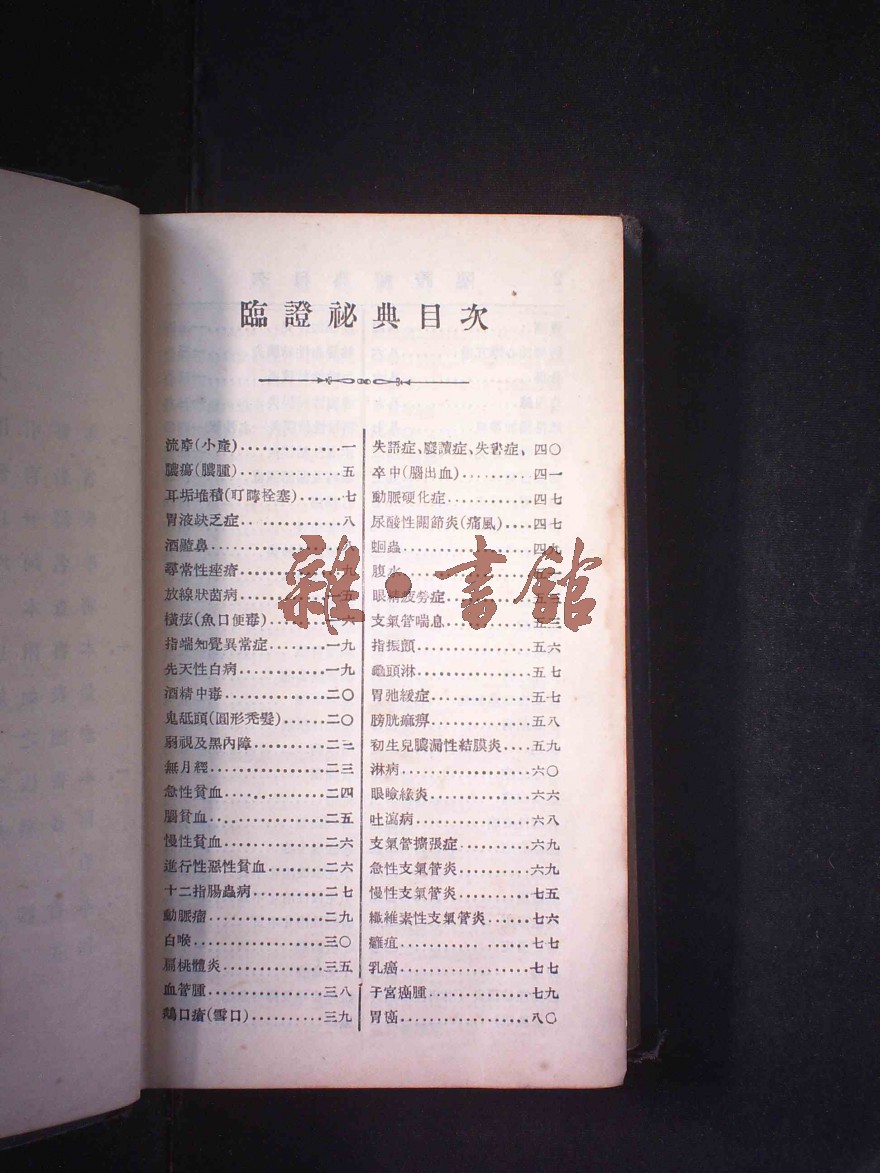 臨證祕典目次
流產(小產)..............一
膿瘍(膿腫)..............五
耳垢堆積(耵聹栓塞)......七
胃液缺乏症..............八
酒齇鼻
尋常性痤瘡..............九
放線狀菌病..............一五
橫痃(魚口便毒)..........一六
指端知覺異常症..........一九
先天性白病..............一九
酒精中毒................二〇
鬼舐頭(圓形禿髮)........二〇
弱視及黑內障............二二
無月經..................二三
急性貧血................二四
腦貧血..................二五
慢性貧血................二六
進行性惡性貧血..........二六
十二指腸蟲病............二七
動脈瘤..................二九
白喉....................三〇
扁桃體炎................三五
血管腫..................三八
鵝口瘡(雪口)............三九
失語症、廢讀症、失書症、四〇
卒中(腦出血)............四一
動脈硬化症..............四七
尿酸性關節炎(痛風)......四七
蛔蟲....................四九
腹水
眼睛疲勞症..............五三
支氣管喘息..............五三
指振顫..................五六
龜頭淋..................五七
胃弛緩症................五七
膀胱痲痹................五八
初生兒膿漏性結膜炎......五九
淋病....................六〇
眼瞼緣炎................六六
吐瀉病..................六八
支氣管擴張症............六九
急性支氣管炎............六九
慢性支氣管炎............七五
纖維素性支氣管炎........七六
癰疽....................七七
乳癌....................七七
子宮癌腫................七九
胃癌....................八〇
雜·書館